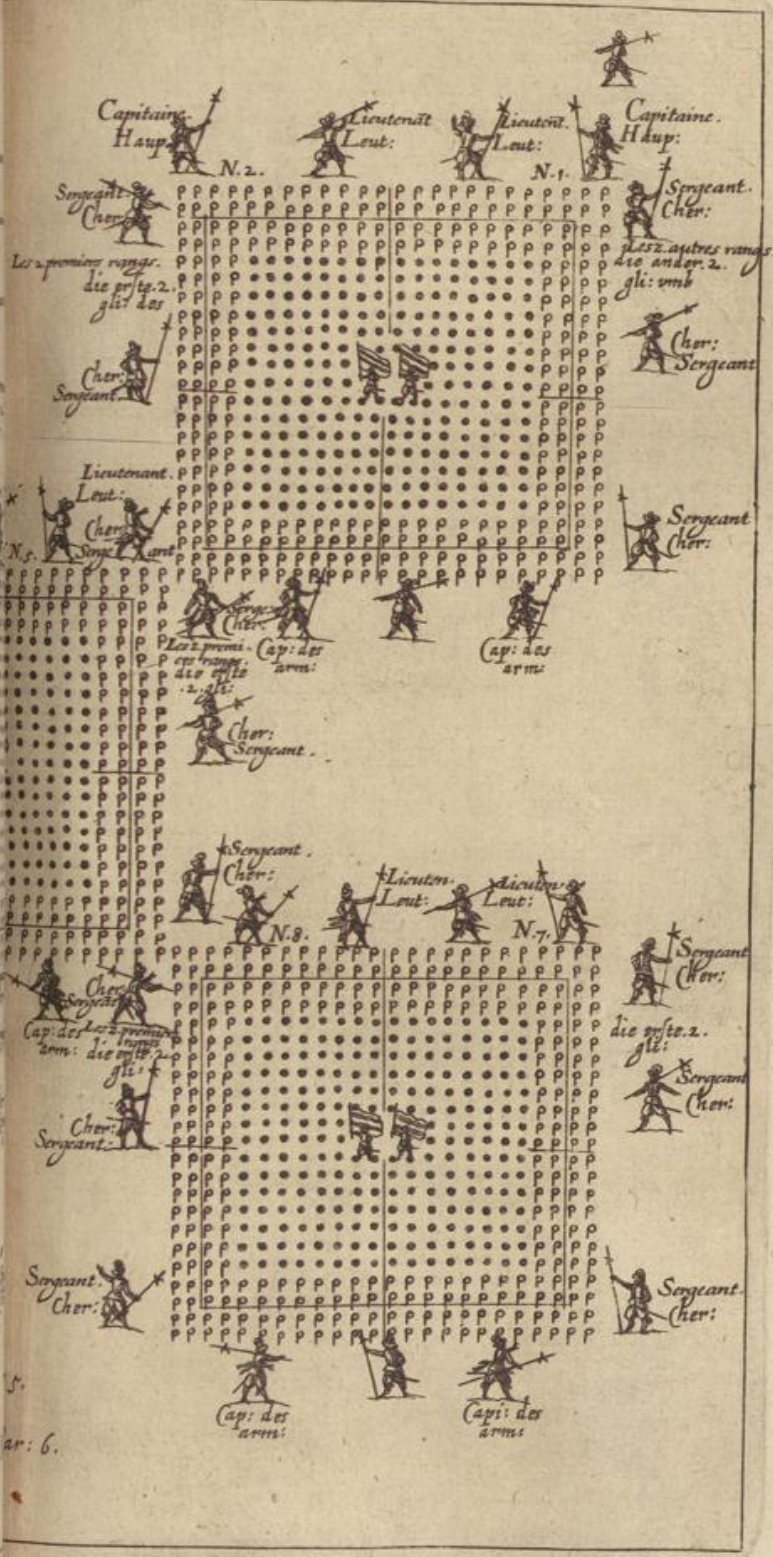 Capitaine
Haup
Lieutenãt
Leut:
Lieuteñt.
Leut:
Capitaine.
Haup:
N. 2.
N. 1.
Sergeant
Cher
Sergeant.
Cher:
Les 2 premiers rangs.
die erste. 2.
gli: des
Les 2. autres rangs
die ander. 2.
gli: vmb
Cher:
Sergeant
Cher:
Sergeant.
Lieutenant.
Leut:
Cher
Sergeant
N. 5.
Sergeant
Cher:
Serge
Cher:
Les 2 premi-
ers rangs.
die erste
.2. gli:
Cap: des
arm:
Cap: des
arm:
Cher:
Sergeant.
Sergeant.
Cher:
Lieuten.
Leut:
Lieuten
Leut:
N. 8.
N. 7.
Sergeant
Cher:
Cher
Sergeant
Cap: des
arm:
Les 2 premiers
rangs
die erste. 2.
gli:
die erste. 2.
gli:
Sergeant
Cher:
Cher:
Sergeant:
Sergeant.
Cher:
Sergeant.
Cher:
Cap: des
arm:
Capi: des
arm:
5.
ar: 6.